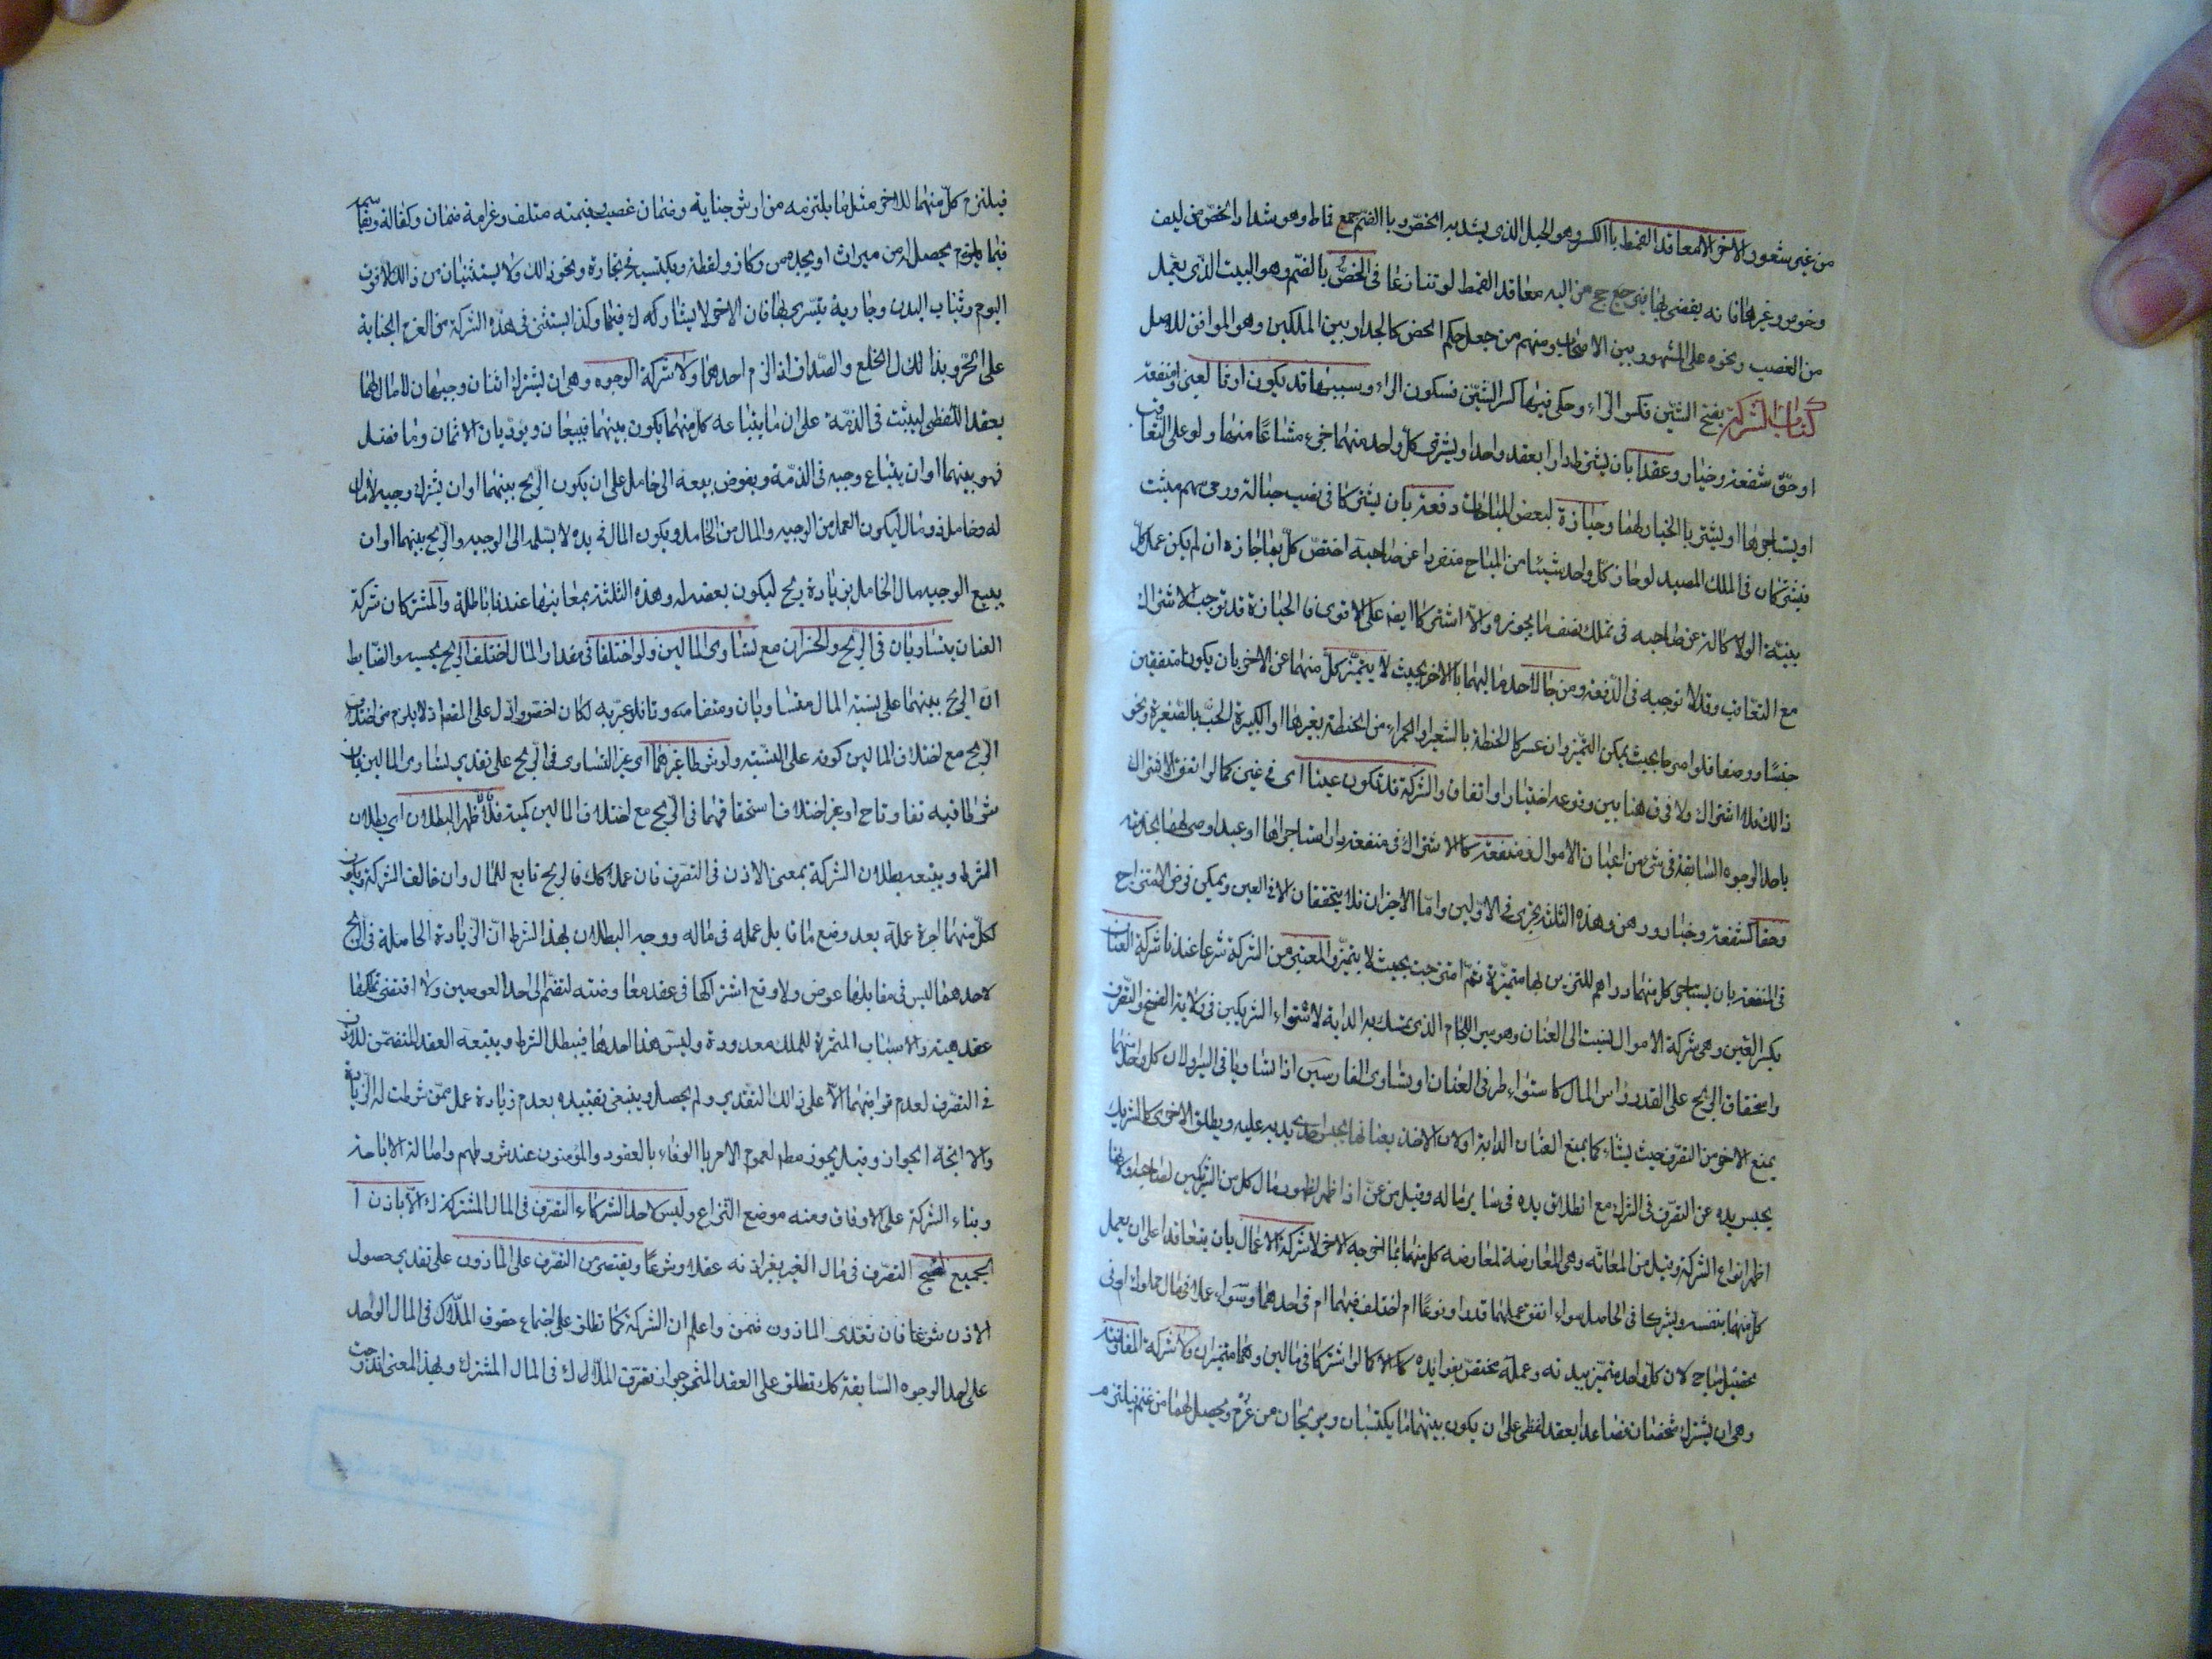 من غير شعور الاخر الا معاقد القمط باالكسر وهو الحبل الذى يشد به الخصّ وباالضّم جمع قماط وهو شداد الخصّ من ليف
وخوص وغيرهما فانه يقضى بها فيرجح من اليه معاقد القمط لو تنازعا فى الخصّ بالضّم وهو البيت الذّى يعمل
من القصب ونحوه على المشهور بين الاصحاب ومنهم من جعل حكم الخص كالجدار بين الملكين وهو الموافق للاصل
كتاب الشركة بفتح الشّين فكسر الرّاء وحكى فيها كسر الشّين فسكون الراء وسببها قد يكون ارثا لعين او منفعة
او حقّ شفعة وخيار وعقدا بان يشتريا دارا بعقد واحد او يشترى كلّ واحد منهما جزء مشاعًا منها ولو على التعاقب
او يستاجراها او يشتريا بالخيار لهما وحيازة لبعض المباحات دفعة بان يشتركا فى نصب حبالة ورمى سهم مثبت
فيشتركان فى الملك المصيد لو حاز كلّ واحد شيئا من المباح منفردا عن صاحبه اختصّ كلّ بما حازه ان لم يكن عمل كلّ
بنيّة الوكالة عن صاحبه فى تملك نصف ما يحوزه والّا اشتركا ايضا على الاقوى فا الحيازة قد توجب الاشتراك
مع التعاقب وقد لا توجبه فى الدّفعة ومزجا لاحد ماليهما بالاخر بحيث لا يتميّز كلّ منهما عن الاخر بان يكونا متفقين
جنسًا ووصفا فلو امتزجا بحيث يمكن التّميّز وان عسر كا الحنطة بالشعير او الحمراء من الحنطة بغيرها او الكبيرة الحبّ بالصّغيرة ونحو
ذالك فلا اشتراك ولا فرق هنا بين وقوعه اختيارا واتفاقا والشركة قد تكون عينا اى فى عين كما لو اتفق الاشتراك
باحد الوجوه السّابقة فى شئ من اعيان الاموال ومنفعة كالاشتراك فى منفعة دار استاجراها او عبد اوصى لهما بخدمته
وحقا كشفعة وخيار ورهن وهذه الثلثة تجرى فى الاوّلين وامّا الاخيران فلا يتحققان الا فى العين ويمكن فرض الامتزاج
فى المنفعة بان يستاجر كل منهما دراهم للتزين بها متميّزة ثمّ امتزجت بحيث لا يتميّز والمعتبر من الشركة شرعا عندنا شركة العنان
بكسر العين وهى شركة الاموال نسبت الى العنان وهو سير اللجام الذى يمسك به الدابة لاستواء الشريكين فى ولاية الفسخ والتصّرف
واستحقاق الرّبح على القدر راس المال كاستواء طرفى العنان او تساوى الفارسين اذا تساويا فى السير او لان كل واحد منهما
يمنع الاخر من التصّرف حيث يشاء كما يمنع العنان الدابة او لان الاخذ بعنانها يحبس احدى يديه عليه ويطلق الاخرى كالشريك
يحبس يده عن التصّرف فى الشرك مع انطلاق يده فى ساير ماله وقيل من عنّ اذا ظهر لظهور مال كل من الشريكين لصاحبه او لانها
اظهر انواع الشركة وقيل من المعانّة وهى المعارضة لمعارضة كل منهما بما اخرجه الاخر لا شركة الاعمال بان يتعاقدا على ان يعمل
كلّ منهما بنفسه ويشتركا فى الحاصل سواء اتفق عملهما قدرا ونوعًا ام اختلف فيهما ام فى احدهما وسواء عملا فى مال مملوك او فى
تحصيل مباح لان كلّ واحد متميّز ببدنه وعمله مختصّ بفوايده كما لو اشتركا فى مالين وهما متميزان ولا شركة المفاوضة
وهى ان يشترك شخصان فصاعدا بعقد لفظى على ان يكون بينهما ما يكتسبان ويربحان من غرم ويحصل لهما من غنم فيلتزم
فيلتزم كلّ منهما للاخر مثل ما يلتزمه من ارش جناية وضمان غصب وقيمة متلف وغرامة ضمان وكفالة ويقاسمه
فيما يحصل له من ميراث او يجده من ركاز ولقطة ويكتسبه فى تجارة ونحو ذالك ولا يستثنيان من ذالك الا قوت
اليوم وثياب البدن وجارية يتسرى بها فان الاخر لا يشاركه فيها وكذا يستثنى فى هذه الشركة من الغرم الجناية
على الحرّ وبذل الخلع والصّداق اذا لزم احدهما ولا شركة الوجوه وهى ان يشترك اثنان وجيهان لا مال لهما
بعقد اللّفظى ليبتاعا فى الذمّة على ان ما يبتاعه كلّ منهما يكون بينهما فيبيعان ويؤدّيان الاثمان وما فضل
فهو بينهما او ان يبتاع وجيه فى الذمّة ويفوض بيعه الى خامل على ان يكون الرّبح بينهما او ان يشترك وجيه لا مال
له وخامل ذو مال ليكون العمل من الوجيه والمال من الخامل ويكون المال فى يده لا يسّلمه الى الوجيه والرّبح بينهما او ان
يبيع الوجيه مال الخامل بزيادة ربح ليكون بعضه له وهذه الثلثة بمعانيها عندنا باطلة والمشتركان شركة
العنان يتساويان فى الرّبح والخسران مع تساوى المالين ولو اختلفا فى مقدار المال اختلف الربح بحسبه والضّابط
انّ الرّبح بينهما على نسبة المال متساويان ومتفاضلة فلو عبّر به لكان اخصر وادل على المقصود اذ لا يلزم من اختلاف
الرّبح مع اختلاف المالين كونه على النسّبة ولو شرطا غيرهما اى غير التساوى فى الرّبح على تقدير تساوى المالين بان
شرطا فيه تفاوتا او غير اختلاف استحقاقهما فى الرّبح مع اختلاف المالين كمية فالاظهر البطلان اى بطلان
الشرط ويتبعه بطلان الشركة بمعنى الاذن فى التصّرف فان عملا كك فالربح تابع للمال وان خالف الشركة ويكون
لكلّ منهما اجرة عمله بعد وضع ما قابل عمله فى ماله ووجه البطلان بهذا الشرط انّ الزّيادة الحاصلة فى الربح
لاحدهما ليس فى مقابلها عوض ولا وقع اشتراكها فى عقد معاوضته لتضمّ الى احد العوضين ولا اقتضى تملكها
عقد هبة والاسباب المثمرة للملك معدودة وليس هذا احدها فيبطل الشرط ويتبعه العقد المتضمّن للاذن
فى التصّرف لعدم تراضيهما الّا على ذالك التقدير ولم يحصل وينبغى تقييده بعدم زيادة عمل ممّن شرطت له الزّيادة
والا اتجّه الجواز وقيل يجوز مطم لعموم الامر باالوفاء بالعقود والمؤمنون عند شروطهم واصالة الاباحة
وبناء الشركة على الارفاق ومنه موضع النّزاع وليس لاحد الشركاء التصّرف فى المال المشترك الّا باذن ا
لجميع لقبح التصّرف فى مال الغير بغير اذنه عقلا وشرعًا ويقتصر من التصّرف على الماذون على تقدير حصول
الاذن شرعا فان تعدّى الماذون ضمن واعلم ان الشركة كما تطلق على اجتماع حقوق الملّاك فى المال الواحد
على احد الوجوه السّابقة كك تطلق على العقد المثمر جواز تصرّف الملّاك فى المال المشترك وبهذا المعنى اندرجت